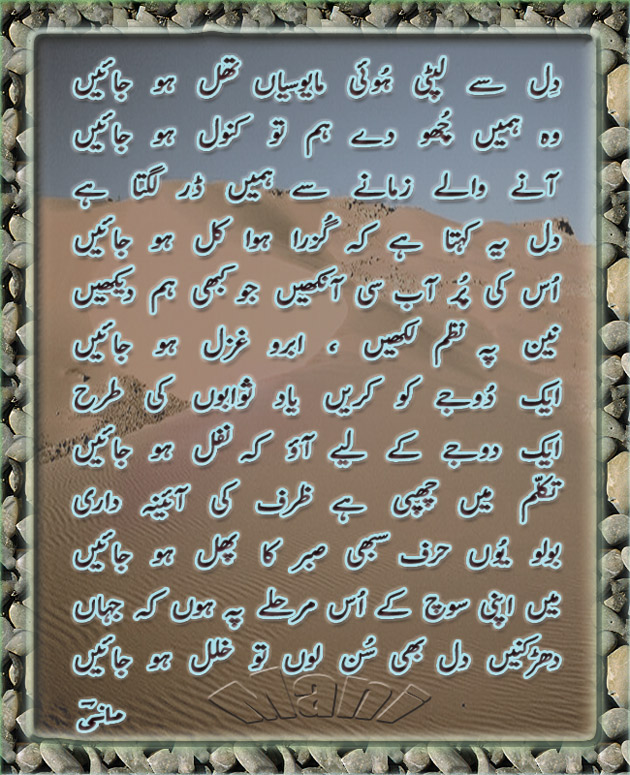 دِل سے لپٹی ہُوئی مایوسیاں تھل ہو جائیں
وہ ہمیں چُھو دے ہم تو کنول ہو جائیں
آنے والے زمانے سے ہمیں ڈر لگتا ہے
دل یہ کہتا ہے کہ گُزرا ہوا کل ہو جائیں
اُس کی پُر آب سی آنکھیں جو کبھی ہم دیکھیں
نین پہ نظم لکھیں ، ابرو غزل ہو جائیں
ایک دُوجے کو کریں یاد ثوابوں کی طرح
ایک دوجے کے لیے آؤ کہ نفل ہو جائیں
تکلّم میں چھپی ہے ظرف کی آئینہ داری
بولو یُوں حرف سبھی صبر کا پھل ہو جائیں
میں اپنی سوچ کے اُس مرحلے پہ ہوں کہ جہاں
دھڑکنیں دل بھی سُن لوں تو خلل ہو جائیں
مانیؔ
Mani